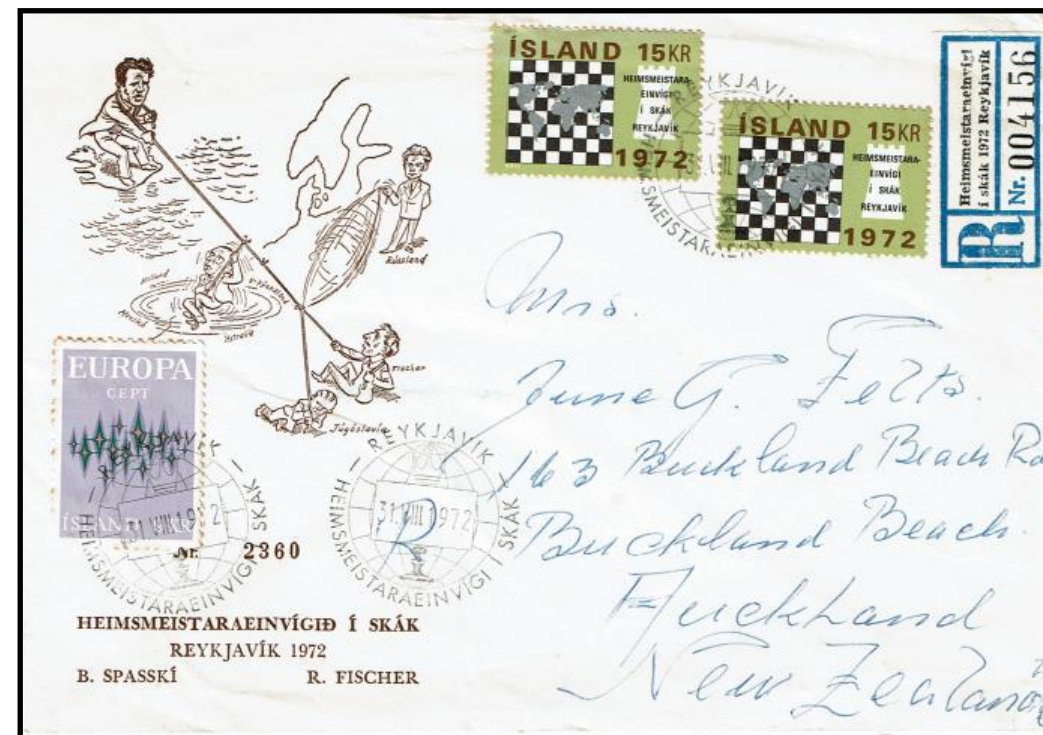 ÍSLAND 15KR
HEIMSMEISTARA-
EINVÍGI
Í SKÁK
REYKJAVÍK
1972
ÍSLAND 15KR
HEIMSMEISTARA-
EINVÍGI
Í SKÁK
REYKJAVÍK
1972
Heimsmeistaraeinvígi
í skák 1972 Reykjavík
R Nr. 004156
Rússland
Holland
V-Þýzkaland
Fischer
Júgóslavía
EUROPA
CEPT
ÍSLAND
REYKJAVÍK
31.VIII 1972
HEIMSMEISTARAEINVÍGI Í SKÁK
REYKJAVÍK
31.VIII 1972
HEIMSMEISTARAEINVÍGI Í SKÁK
R
Nr. 2360
HEIMSMEISTARAEINVÍGIÐ Í SKÁK
REYKJAVÍK 1972
B. SPASSKÍ R. FISCHER
Mrs.
June G. Felts.
163 Buckland Beach Rd
Buckland Beach.
Auckland
New Zealand